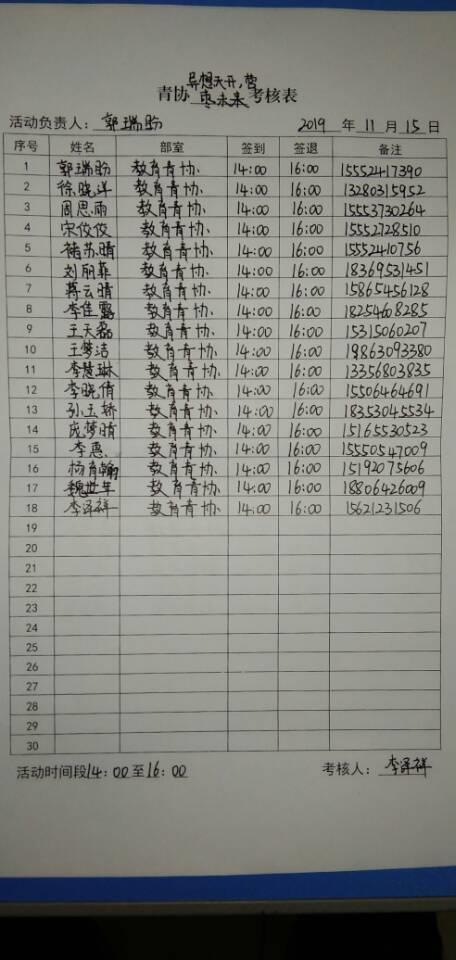 异想天开,营
青协枣未来考核表
活动负责人: 郭瑞盼 2019 年 11 月 15 日
序号 姓名 部室 签到 签退 备注
1 郭瑞盼 教育青协 14:00 16:00 15552417390
2 徐晓洋 教育青协 14:00 16:00 13280315952
3 周思雨 教育青协 14:00 16:00 15553730264
4 宋俊俊 教育青协 14:00 16:00 15552728510
5 褚苏晴 教育青协 14:00 16:00 15552410756
6 刘丽菲 教育青协 14:00 16:00 18369531451
7 蒋云晴 教育青协 14:00 16:00 15865456128
8 李佳露 教育青协 14:00 16:00 18254608285
9 王天磊 教育青协 14:00 16:00 15315060207
10 王梦洁 教育青协 14:00 16:00 19863093380
11 李慧琳 教育青协 14:00 16:00 13356803835
12 李晓倩 教育青协 14:00 16:00 15506464691
13 孙玉娇 教育青协 14:00 16:00 18353045534
14 庞梦晴 教育青协 14:00 16:00 15165530523
15 李惠 教育青协 14:00 16:00 15550547009
16 杨肖翰 教育青协 14:00 16:00 15192075606
17 魏世年 教育青协 14:00 16:00 18806426009
18 李泽祥 教育青协 14:00 16:00 15621231506
19
20
21
22
23
24
25
26
27
28
29
30
活动时间段14:00至16:00 考核人: 李泽祥